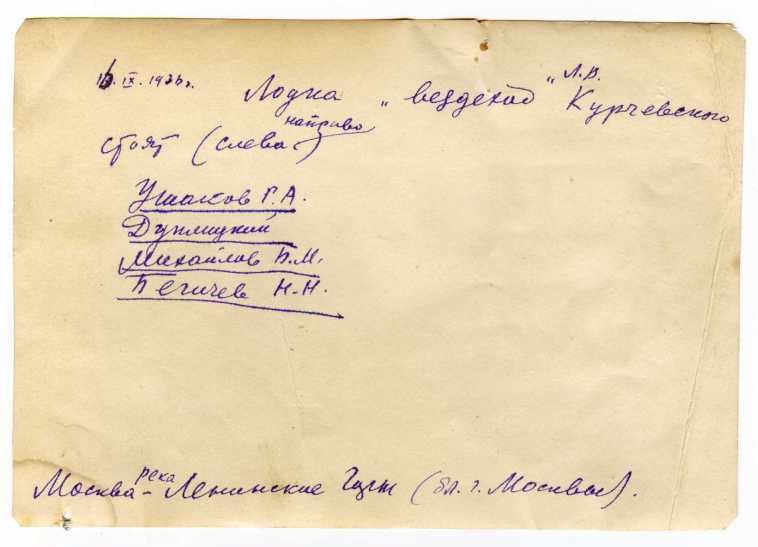 16.IX.1936г. Лодка „вездеход" Л.В. Курчевского
стоят (слева направо)
Ушаков Г.А.
Дуплицкий
Михайлов Б.М.
Бегичев Н.Н.
Москва река - Ленинские Горы (бл. г. Москвы).